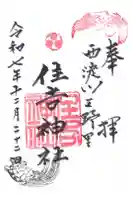 奉拝
西淀川区野里
住吉神社
令和七年十二月二十二日